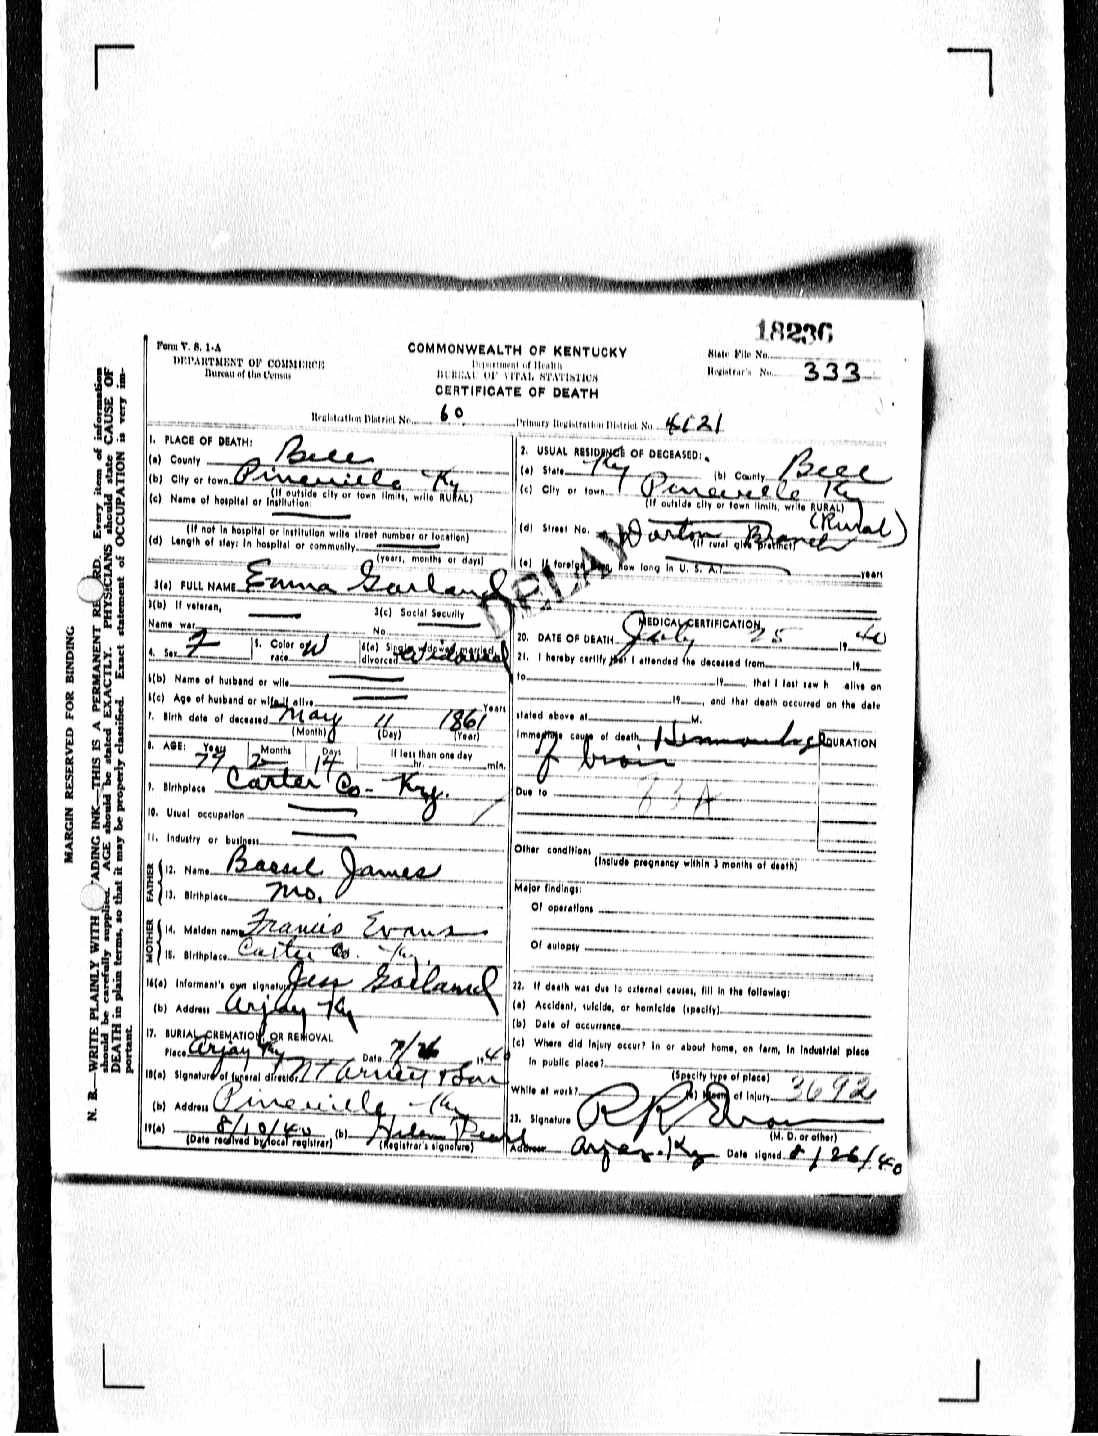 18236
Form V. S. 1-A
DEPARTMENT OF COMMERCE
Bureau of the Census
COMMONWEALTH OF KENTUCKY
Department of Health
BUREAU OF VITAL STATISTICS
CERTIFICATE OF DEATH
State File No.
Registrar's No. 333
Registration District No. 60
Primary Registration District No. 4121
MARGIN RESERVED FOR BINDING
N. B.—WRITE PLAINLY WITH ADING INK—THIS IS A PERMANENT RE RD. Every item of information
should be carefully supplied. AGE should be stated EXACTLY. PHYSICIANS should state CAUSE OF
DEATH in plain terms, so that it may be properly classified. Exact statement of OCCUPATION is very im-
portant.
1. PLACE OF DEATH:
(a) County Bell
(b) City or town Pineville Ky
(If outside city or town limits, write RURAL)
(c) Name of hospital or Institution:
(If not in hospital or institution write street number or location)
(d) Length of stay: In hospital or community
(years, months or days)
3(a) FULL NAME Emma Garland
3(b) If veteran,
Name war
3(c) Social Security
No.
4. Sex F
5. Color or race W
6(a) Single, widowed, married, divorced Widowed
6(b) Name of husband or wife
6(c) Age of husband or wife if alive Years
7. Birth date of deceased May 11 1861
(Month) (Day) (Year)
8. AGE: Years Months Days If less than one day
79 2 14 hr. min.
9. Birthplace Carter Co- Ky.
10. Usual occupation
11. Industry or business
FATHER
12. Name James
13. Birthplace Mo.
MOTHER
14. Maiden name Francis Evans
15. Birthplace Carter Co. Ky.
16(a) Informant's own signature Jess Garland
(b) Address Arjay Ky
17. BURIAL, CREMATION, OR REMOVAL
Place Arjay Ky Date 7/26 1940
18(a) Signature of funeral director & Son
(b) Address Pineville Ky
19(a) 8/10/40 (b) Helen
(Date received by local registrar) (Registrar's signature)
2. USUAL RESIDENCE OF DECEASED:
(a) State Ky (b) County Bell
(c) City or town Pineville Ky
(If outside city or town limits, write RURAL)
(Rural)
(d) Street No. Branch
(If rural give precinct)
(e) If foreign how long in U. S. A.? years
DELAY
MEDICAL CERTIFICATION
20. DATE OF DEATH July 25 1940
21. I hereby certify that I attended the deceased from 19
to 19 that I last saw h alive on
19 , and that death occurred on the date
stated above at M.
Immediate cause of death Hemmorhage DURATION
of brain
Due to 83A
Other conditions
(Include pregnancy within 3 months of death)
Major findings:
Of operations
Of autopsy
22. If death was due to external causes, fill in the following:
(a) Accident, suicide, or homicide (specify)
(b) Date of occurrence
(c) Where did injury occur? In or about home, on farm, in industrial place
In public place?
(Specify type of place)
While at work? (e) Means of Injury 3692
23. Signature R R
(M. D. or other)
Address Arjay-Ky Date signed 8/26/40